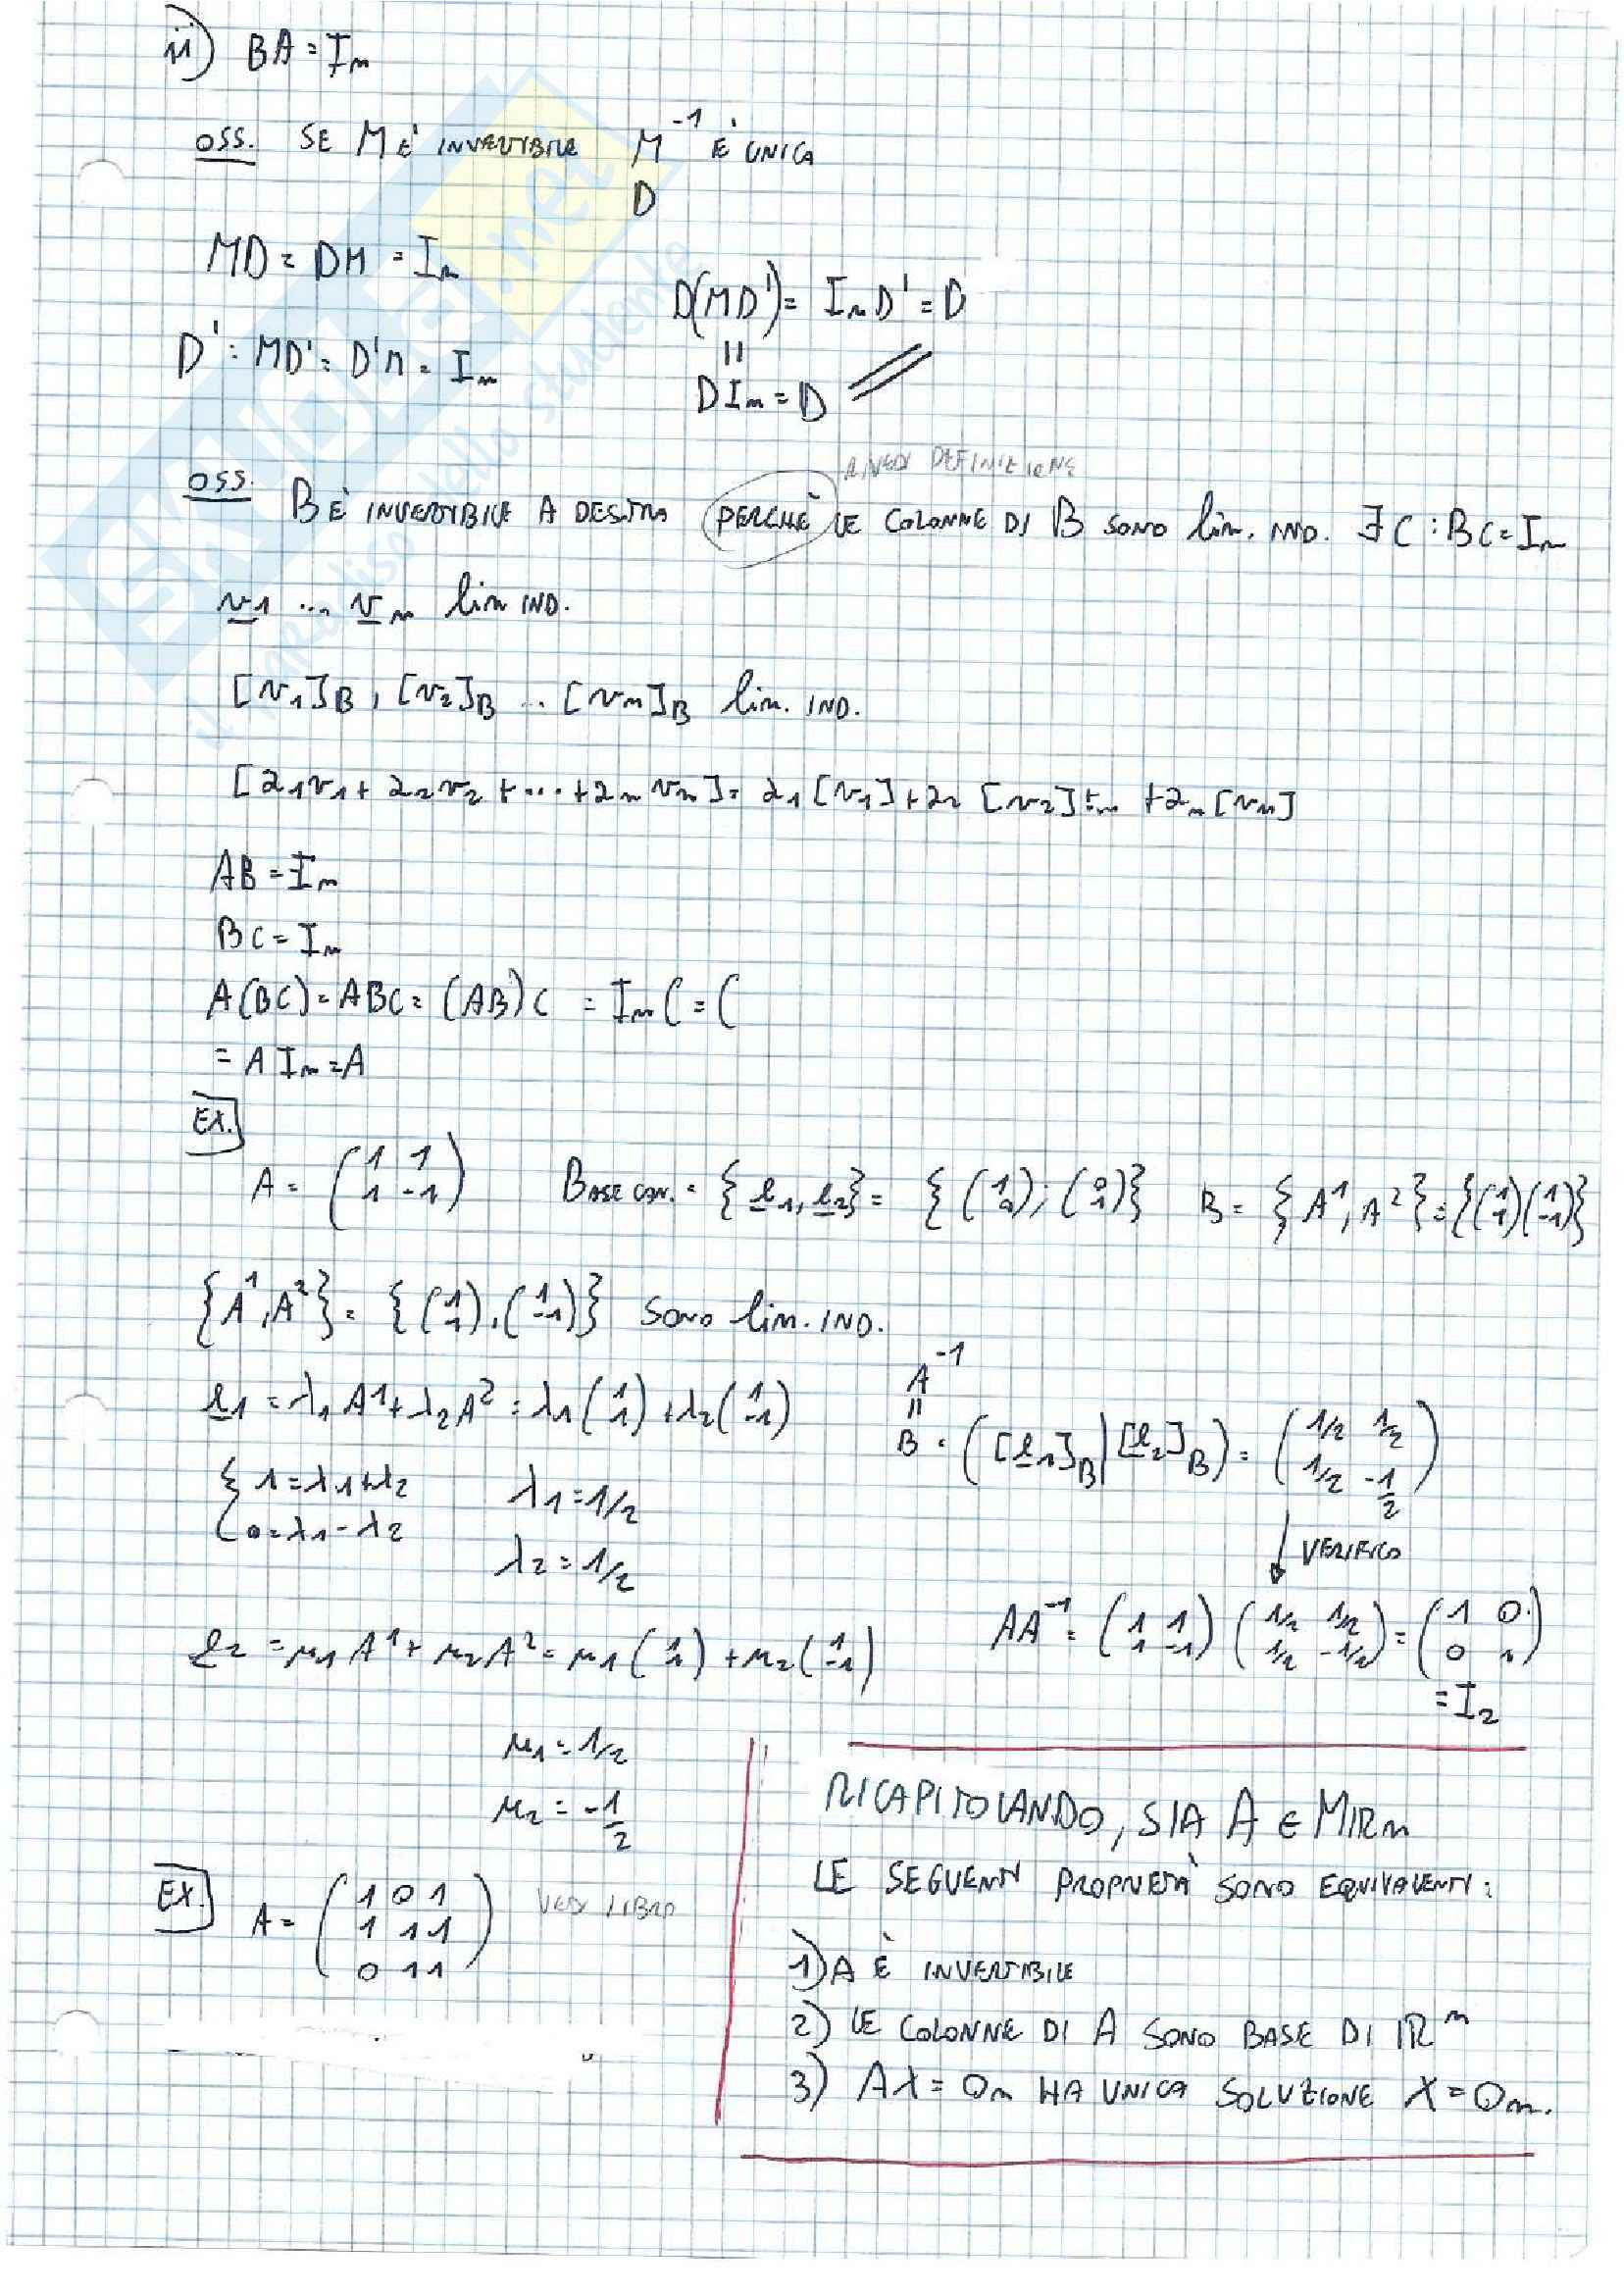 ii) BA = In
OSS. SE M È INVERTIBILE M⁻¹ È UNICA
D
MD = DM = In
D' : MD' = D'M = In
D(MD') = In D' = D
=
DIn = D
RIVEDI DEFINIZIONE
OSS. B È INVERTIBILE A DESTRA PERCHÈ LE COLONNE DI B SONO lin. IND. ∃ C : BC = In
v1 ... vn lin IND.
[v1]B, [v2]B ... [vn]B lin. IND.
[a1v1 + a2v2 + ... + an vn] = a1[v1] + a2[v2] + ... + an[vn]
AB = In
BC = In
A(BC) = ABC = (AB)C = In C = C
= A In = A
EX.
A = (1 1
1 -1) BASE CAN. = {e1, e2} = {(1 0); (0 1)} B = {A¹, A²} = {(1 1) (1 -1)}
{A¹, A²} = {(1 1), (1 -1)} SONO lin. IND.
e1 = λ1 A¹ + λ2 A² = λ1 (1 1) + λ2 (1 -1)
{1 = λ1 + λ2 λ1 = 1/2
0 = λ1 - λ2
λ2 = 1/2
A⁻¹
=
B = ([e1]B | [e2]B) = (1/2 1/2
1/2 -1/2)
↓ VERIFICO
AA⁻¹ = (1 1
1 -1) (1/2 1/2
1/2 -1/2) = (1 0
0 1)
= I2
e2 = μ1 A¹ + μ2 A² = μ1 (1 1) + μ2 (1 -1)
μ1 = 1/2
μ2 = -1/2
EX. A = (1 0 1
1 1 1
0 1 1) VEDI LIBRO
RICAPITOLANDO, SIA A ∈ MIRn
LE SEGUENTI PROPRIETÀ SONO EQUIVALENTI:
1) A È INVERTIBILE
2) LE COLONNE DI A SONO BASE DI IRⁿ
3) AX = 0n HA UNICA SOLUZIONE X = 0n.
SKUOLA.net
il paradiso dello studente